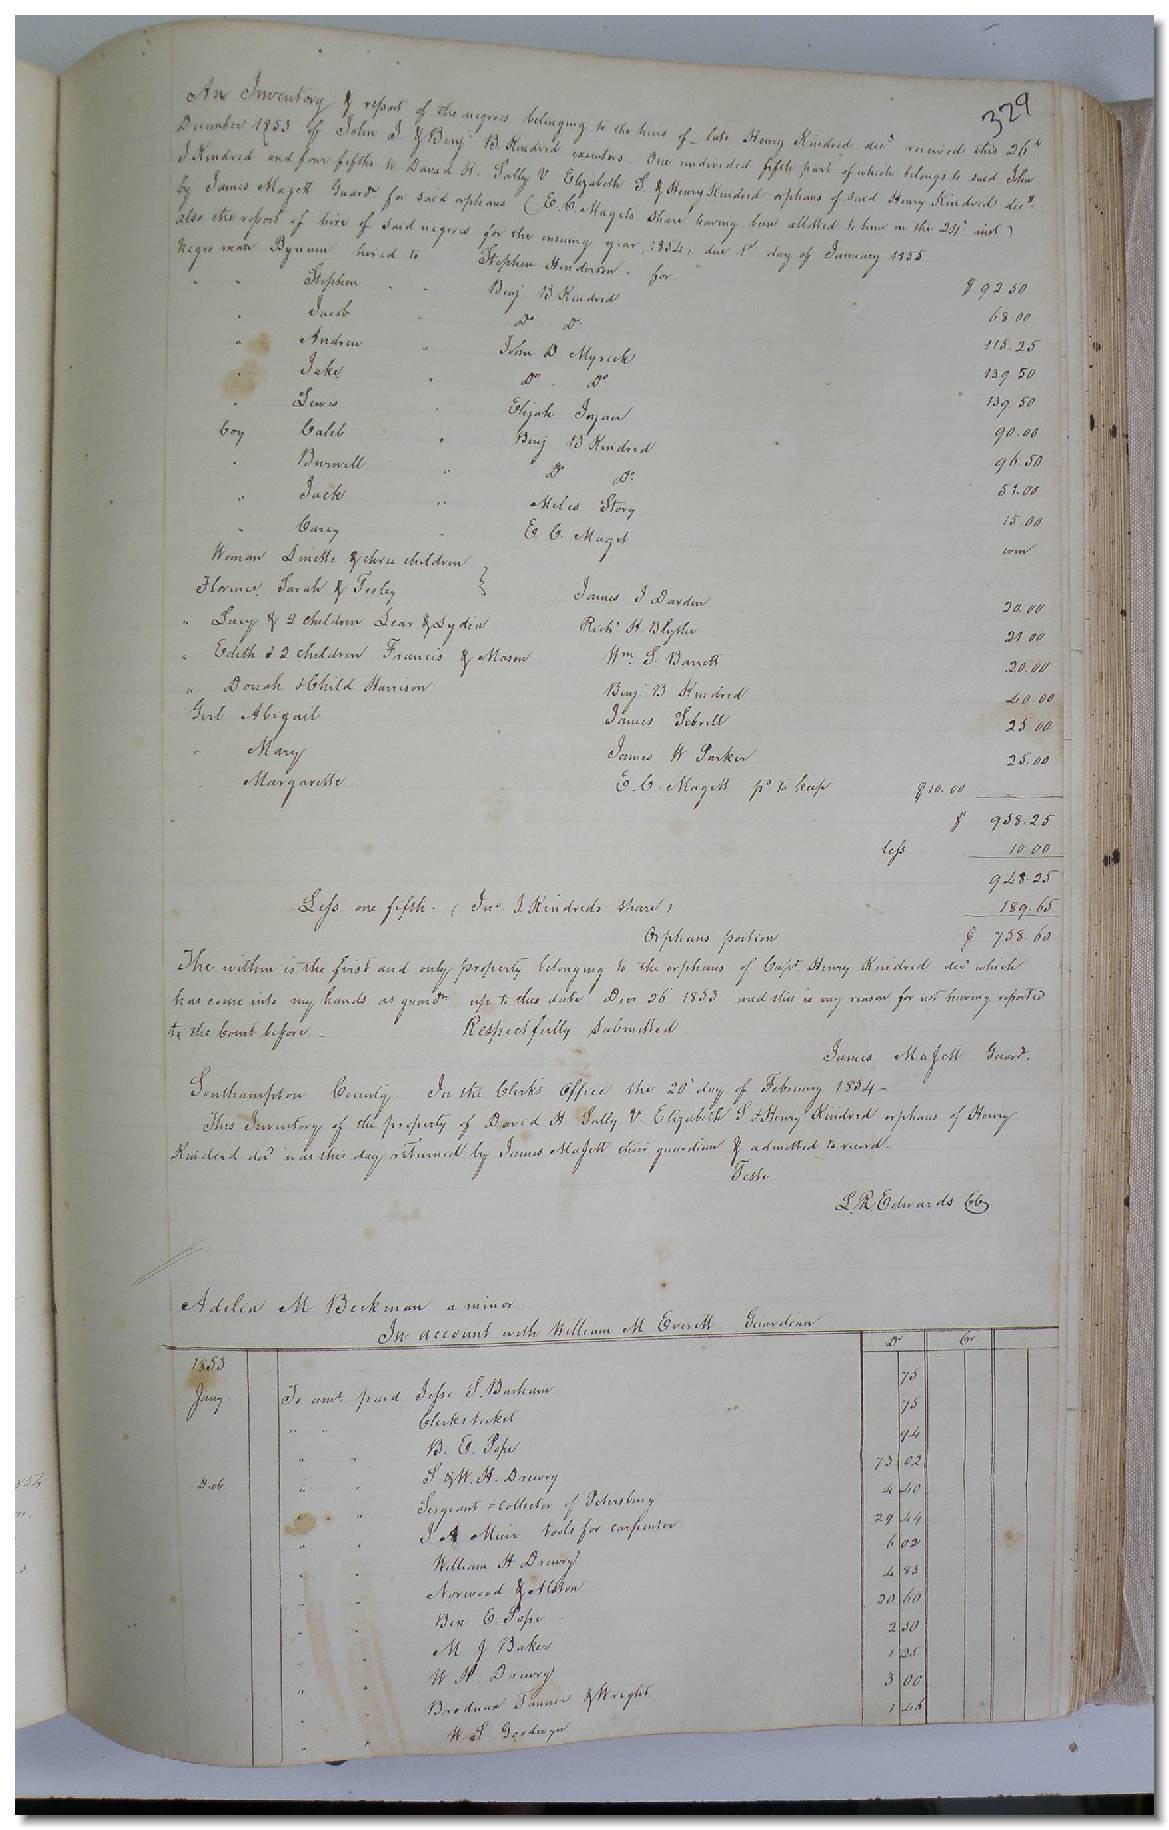 329
An Inventory & report of the negroes belonging to the heirs of late Henry Kindred decd received this 26th
December 1853 of John J. & Benj B Kindred executors. One undivided fifth part of which belongs to said John
J Kindred and four fifths to David H. Sally V Elizabeth S. & Henry Kindred orphans of said Henry Kindred decd.
by James Magett Guardn for said orphans (E. C. Magets share having been allotted to him on the 24th inst)
also the report of hire of said negroes for the ensuing year, 1854, due 1st day of January 1855
Negro man Bynum hired to Stephen Henderson for $ 92.50
" " Stephen " " Benj B Kindred 68.00
" Jacob " Do Do 115.25
" Andrew " John D Myrick 139.50
" Jake " Do Do 139.50
" Lewis " Elijah Joyner 90.00
boy Caleb " Benj B Kindred 96.50
" Burwell " Do Do 51.00
" Jack " Miles Story 15.00
" Carey " E. C. Maget
Woman Dinette & three children
Florence, Sarah & Tesley } James J Darden 20.00
" Lucy & 2 children Lear & Lydia Richd H. Blythe 21.00
" Edith & 2 children Francis & Mason Wm. S. Barrett 20.00
" Donah & Child Harrison Benj. B Kindred 40.00
Girl Abigail James Sebrell 25.00
" Mary James W Parker 25.00
" Margarette E. C. Magett pd to keep $10.00
$ 958.25
less 10.00
948.25
Less one fifth. (Jno. J. Kindreds share) 189.65
Orphans portion $ 758.60
The within is the first and only property belonging to the orphans of Capt Henry Kindred decd which
has come into my hands as guardn up to this date Decr 26 1853 and this is my reason for not having reported
to the Court before. Respectfully submitted
James Magett Guardn.
Southampton County. In the Clerk's Office the 20th day of February 1854 -
This Inventory of the property of David H Sally V. Elizabeth S & Henry Kindred orphans of Henry
Kindred decd was this day returned by James Magett their guardian & admitted to record.
Teste
L. R. Edwards CC
Adelia M Beekman a minor
In account with William M Everett Guardian
Dr Cr
1853
Jany. To amt. paid Jesse S. Barham 75
" " Clerks ticket 75
" " B. E. Pope 94
Feb " " S & W. H. Drewry 73 02
" " Sergeant & collector of Petersburg 4 40
" " J. A Muir tools for carpenter 29 44
" " William H Drewry 6 02
" " Norwood & Alston 4 83
" " Ben E. Pope 20 60
" " M J Baker 2 50
" " W H. Drewry 1 25
" " Brodnax Tanner & Wright 3 00
" " W. S Goodwyn 1 46